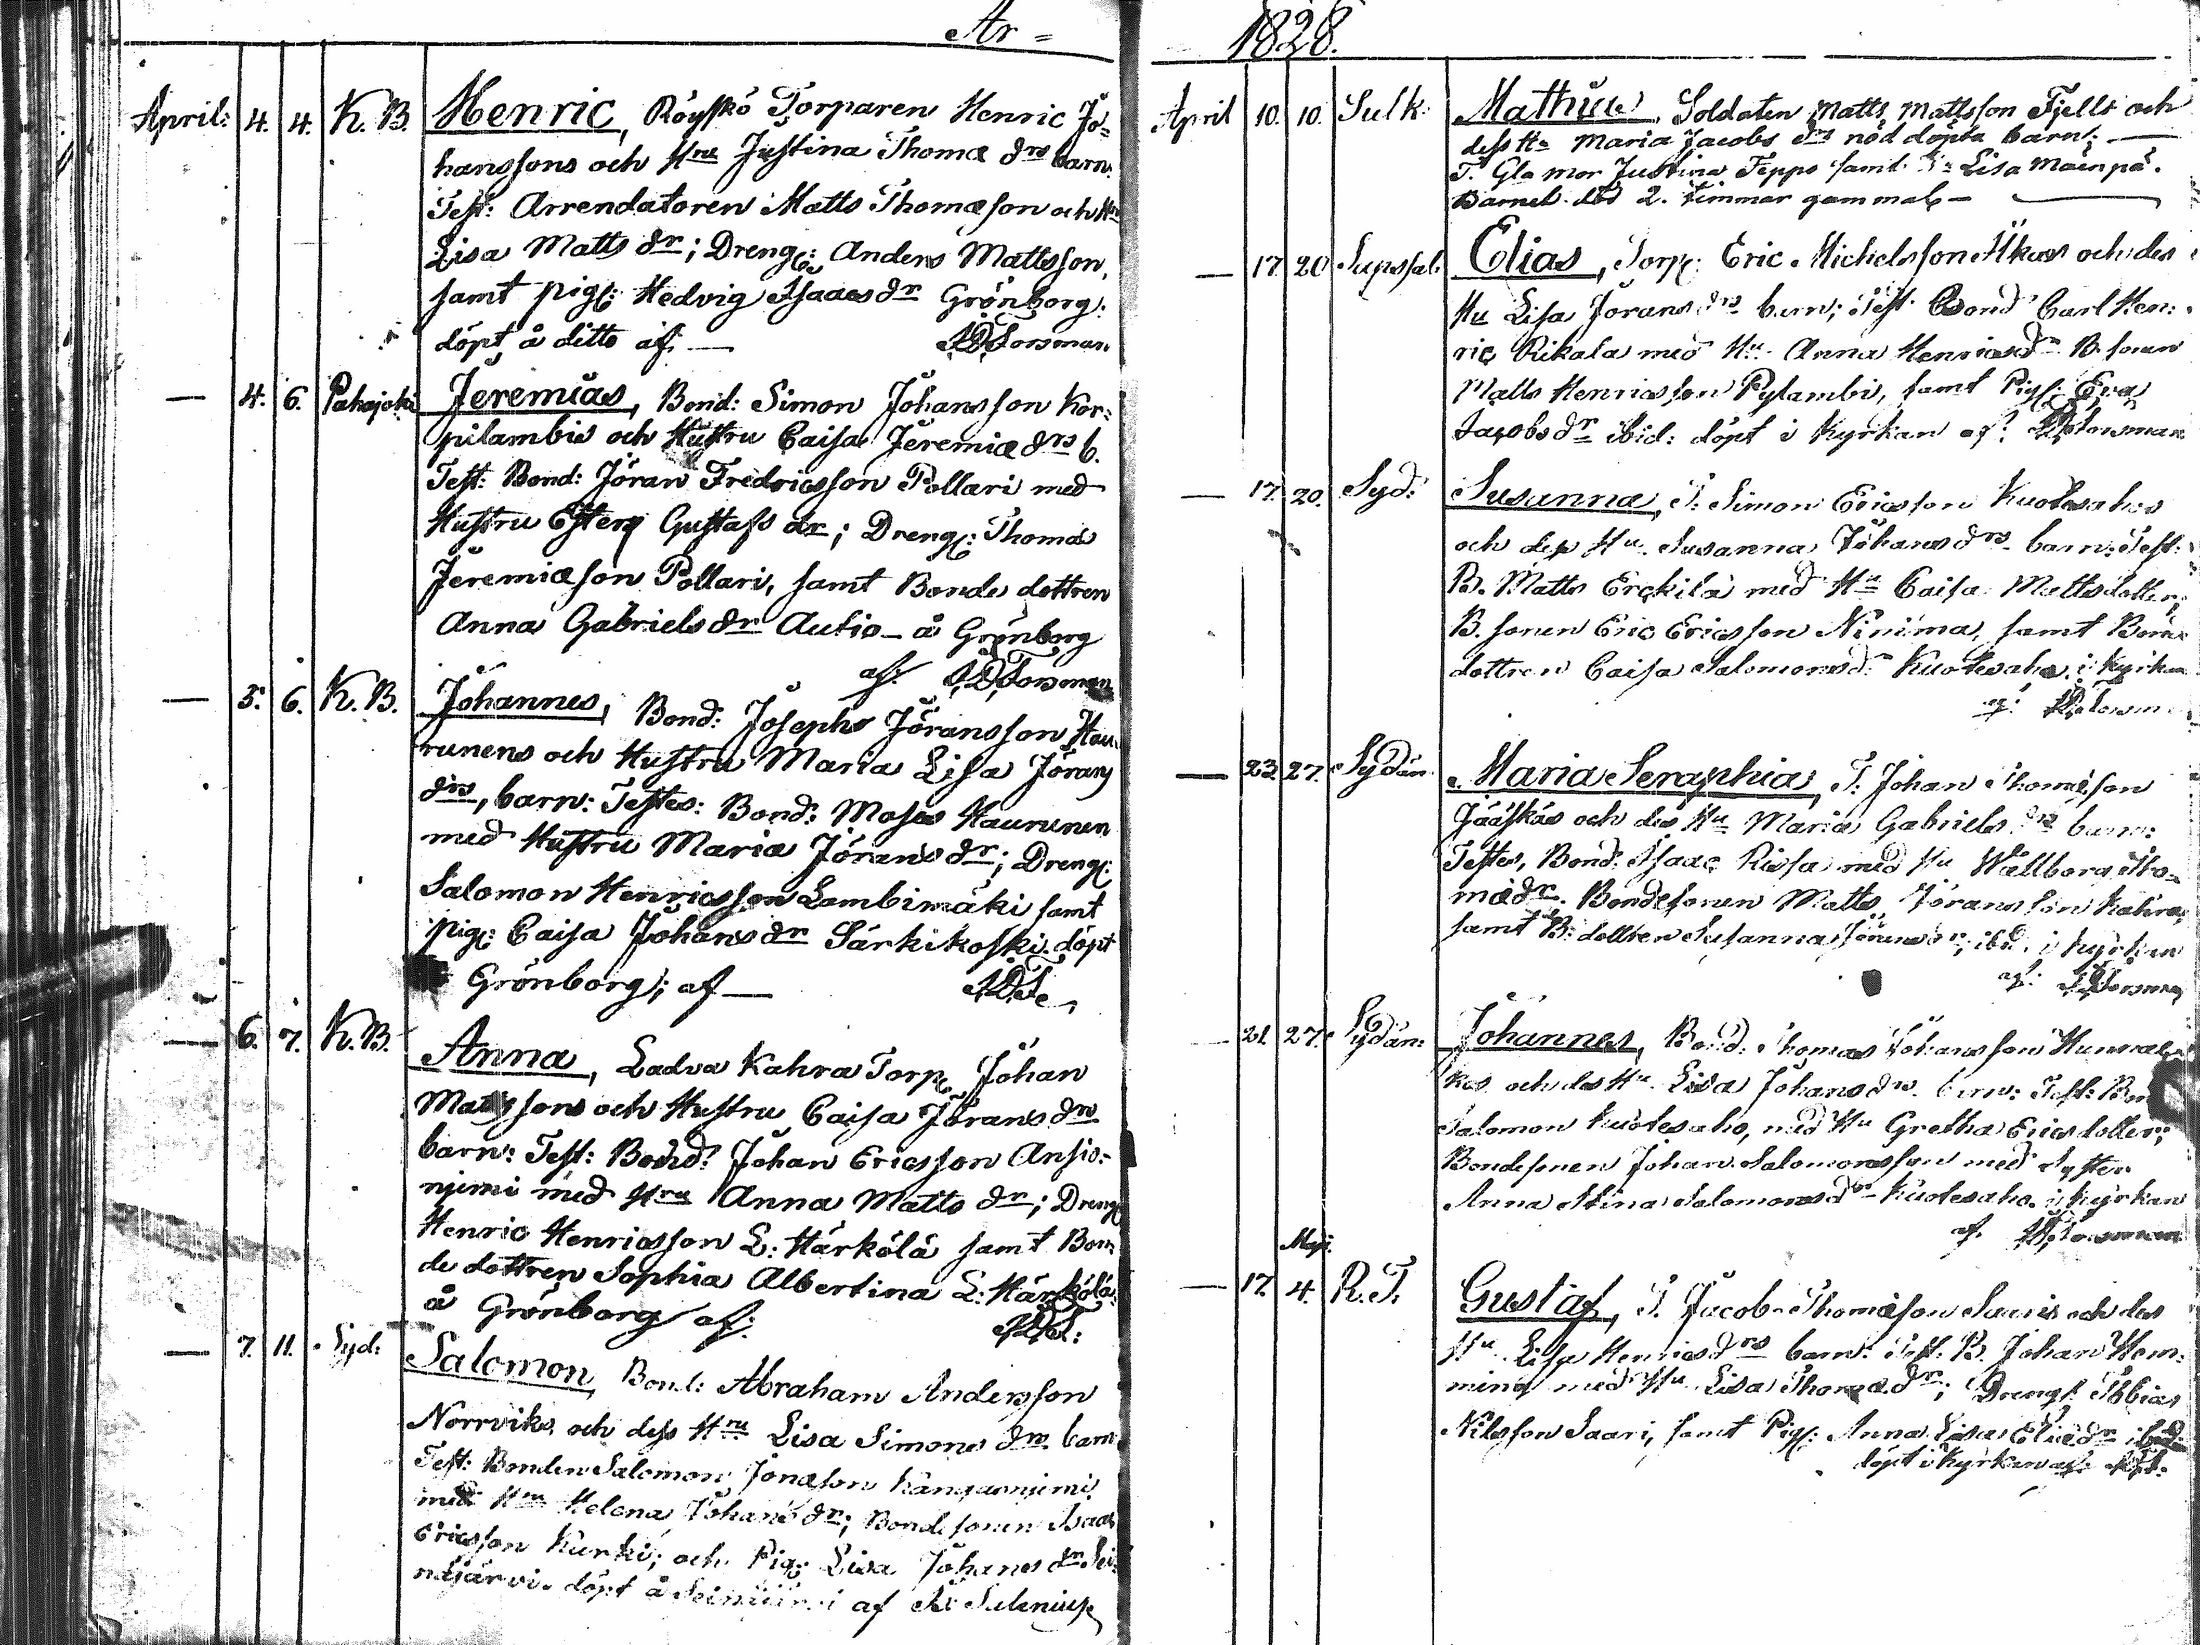 År = 1828.
April: 4. 4. K. B. Henric, Röyskö Torparen Henric Jo=
hanssons och Hru Justina Thomæ drs barn:
Test: Arrendatoren Matts Thomæson och Hru
Lisa Matts dr; Dreng: Anders Mattsson,
samt pig: Hedvig Isaacs dr Grönborg:
döpt å ditto af: — Forsman
— 4. 6. Pahajoki Jeremias, Bond: Simon Johansson Kor=
pilambis och Hustru Caisa Jeremiæ drs b.
Test: Bond: Jöran Fredricsson Pollari med
Hustru Ester Gustafs dr; Dreng: Thomas
Jeremiæson Pollari, samt Bonde dottren
Anna Gabriels dr Autio — å Grönborg
af: Forsman
— 5. 6. K. B. Johannes, Bond: Josephs Jöransson Hau=
runens och Hustru Maria Lisa Jörans
drs, barn: Testes: Bond: Moses Haurunen
med Hustru Maria Jörans dr; Dreng:
Salomon Henricsson Lambimäki samt
pig: Caisa Johans dr Särkikoski. döpt
Grönborg; af —
— 6. 7. K. B. Anna, Ladva Kahra Torp: Johan
Matssons och Hustru Caisa Jörans drs
barn: Test: Bond: Johan Ericsson Ansio=
njemi med Hru Anna Matts dr; Dreng:
Henric Henricsson L: Härkölä samt Bon=
de dottren Sophia Albertina L: Härkölä:
å Grönborg af:
— 7. 11. Syd: Salomon, Bond: Abraham Andersson
Norrviks, och dess Hru Lisa Simons drs barn
Test: Bonden Salomon Jonæson Kangasnjemi
med Hru Helena Johans dr; Bonde sonen Isaac
Ericsson Kurki; och Pig: Lisa Johans dr Sei=
näjärvi. döpt å af
April 10. 10. Sulk: Soldaten Matts Mattsson Fjells och
dess Hu Maria Jacobs drs nöd döpta barn; —
T. Gla mor Justina Teppo samt Lisa Mäenpä.
Barnet död 2. timmar gammalt —
— 17 20 Elias, Torp: Eric Michelsson och des
Hu Lisa Jörans drs barn; Test. Bond Carl Hen=
ric Rikala med Hu Anna Henricsdr B. sonen
Matts Henricsson Pylambi, samt Pig: Eva
Jacobs dr ibid: döpt i Kyrkan af: Forsman
— 17. 20. Syd: Susanna, T: Simon Ericsson Kuotesahos
och des Hu Susanna Johans drs barn: Test:
B. Matts Erckilä med Hu Caisa Mattsdotter;
B. sonen Eric Ericsson Ninima, samt Bonde
dottren Caisa Salomonsdr Kuotesaho, i Kyrkan
af: Forsman
— 23 27. Sydän. Maria Seraphia, T: Johan Thomæson
Jääskäs och des Hu Maria Gabriels drs barn:
Testes, Bond: Isaac Rissa med Hu Wallborg Tho=
mædr. Bondesonen Matts Jöransson Kahra,
samt B: dottren Susanna Jörans dr; ibd, i Kyrkan
af: Forsman
— 21. 27. Sydän: Johannes, Bond: Thomas Johansson
och des Hu Lisa Johans drs barn: Test:
Salomon Kuotesaho, med Hu Gretha Ericsdotter;
Bondesonen Johan Salomonsson med syster
Anna Stina Salomonsdr Kuotesaho. i Kyrkan
af. Forsman
Maji
— 17. 4. R. T. Gustaf, T. Jacob Thomæson Saaris och des
Hu Lisa Henricsdrs barn: Test: B. Johan Hem=
ming med Hu Lisa Thomædr; Dreng: Tobias
Nilsson Saari, samt Pig: Anna Lisa Eliædr ibid:
döpt i Kyrkan af: